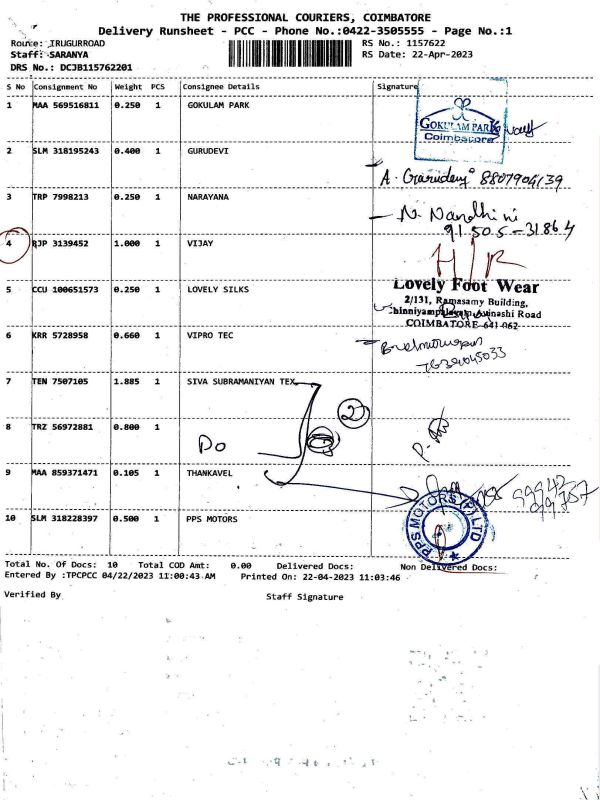 THE PROFESSIONAL COURIERS, COIMBATORE
Delivery Runsheet - PCC - Phone No.:0422-3505555 - Page No.:1
Route: IRUGURROAD RS No.: 1157622
Staff: SARANYA RS Date: 22-Apr-2023
DRS No.: DCJB115762201
S No Consignment No Weight PCS Consignee Details Signature
1 MAA 569516811 0.250 1 GOKULAM PARK
GOKULAM PARK
Coimbatore
2 SLM 318195243 0.400 1 GURUDEVI
A. 8807904139
3 TRP 7998213 0.250 1 NARAYANA
N. Nandhini
91505-31864
4 RJP 3139452 1.000 1 VIJAY
H/R
5 CCU 100651573 0.250 1 LOVELY SILKS
Lovely Foot Wear
2/131, Ramasamy Building,
Chinniyampalayam, Avinashi Road
COIMBATORE-641 062
6 KRR 5728958 0.660 1 VIPRO TEC
7 TEN 7507105 1.885 1 SIVA SUBRAMANIYAN TEX
2
8 TRZ 56972881 0.800 1
Do
9 MAA 859371471 0.105 1 THANKAVEL
10 SLM 318228397 0.500 1 PPS MOTORS
PPS MOTORS (P) LTD
Total No. Of Docs: 10 Total COD Amt: 0.00 Delivered Docs: Non Delivered Docs:
Entered By :TPCPCC 04/22/2023 11:00:43 AM Printed On: 22-04-2023 11:03:46
Verified By Staff Signature